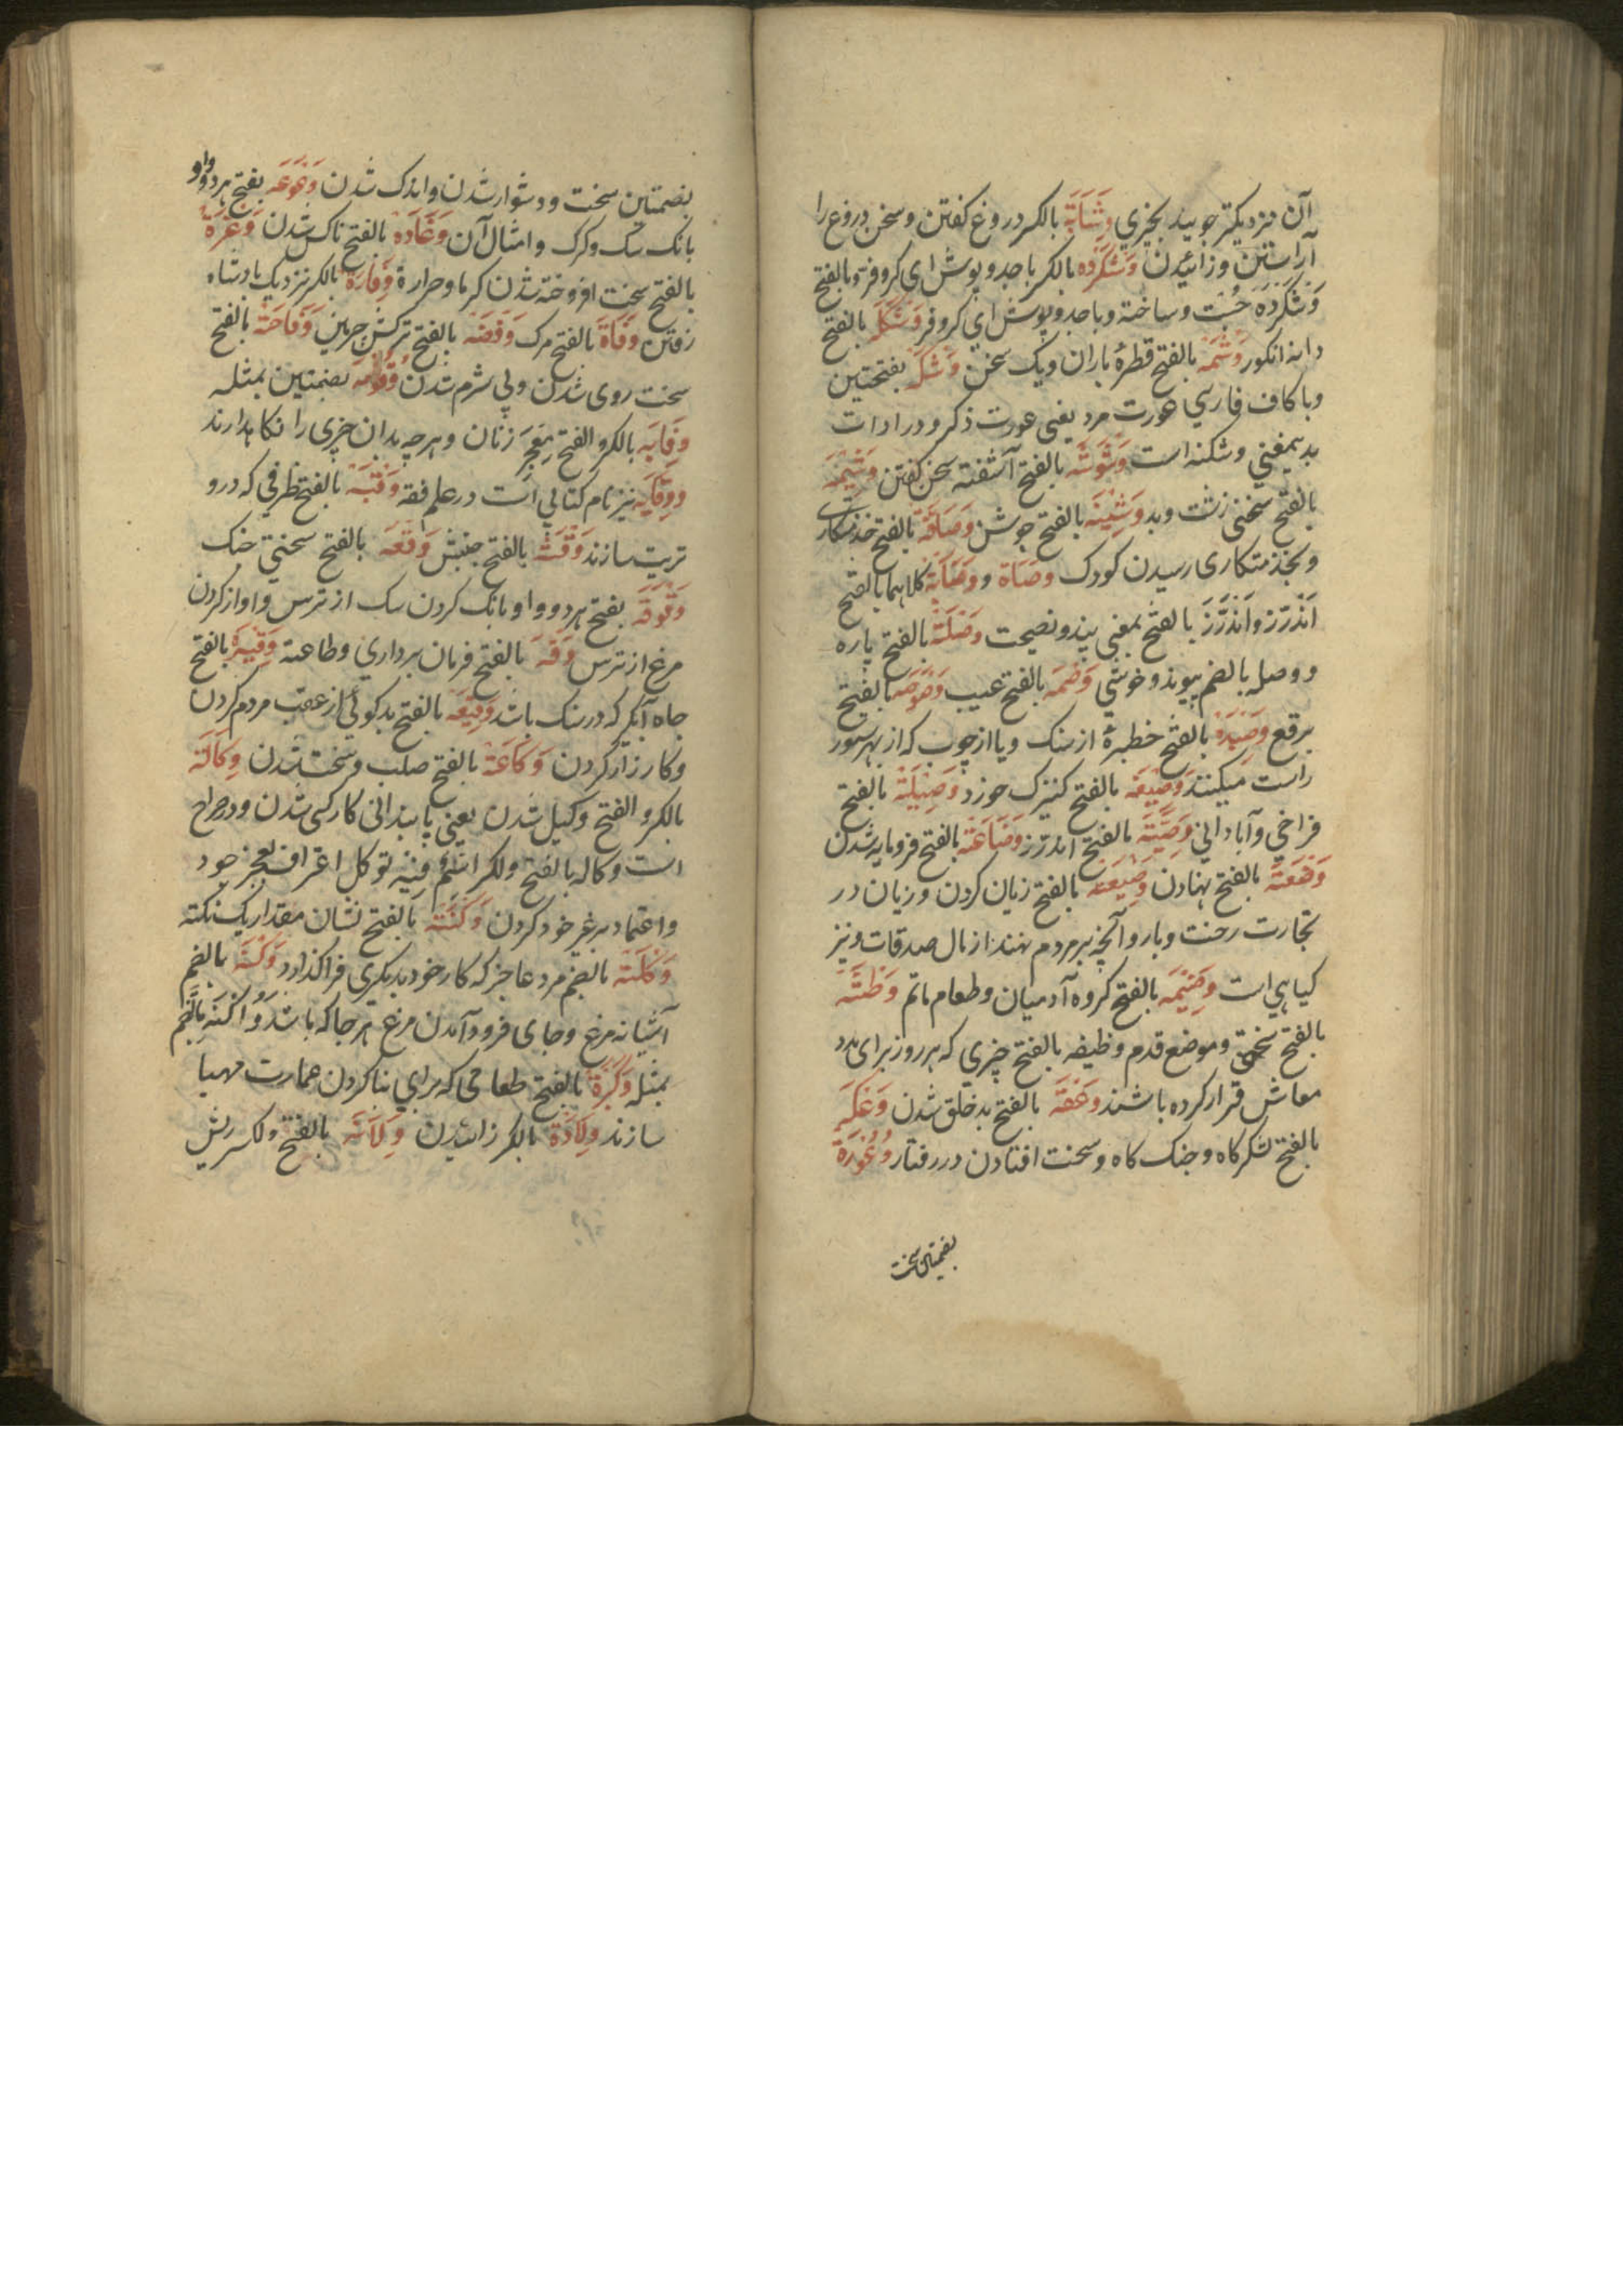 آن نزدیکتر جویند بخیری وِشَایَة بالکسر دروغ کفتن وسخن دروغ را
آراستن وزائیدن وَشکَرده بالکسر باجد وپوش ای کروفر وبالفتح
وَشکَرده جُست وساخته وباجد وپوش ای کروفر وَشکَله بالفتح
دانهٔ انکور وَشمَه بالفتح قطرهٔ باران ویک سخن وَشَکَه بفتحتین
وباکاف فارسی عورت مرد یعنی عورت ذکر ودر ادات
بدیمعنی وشکنه است وَشوَشَه بالفتح آشفته سخن کفتن وَشِیمَه
بالفتح سخنی زشت وبد وَشِینَه بالفتح جوشن وَصَافَة بالفتح خدمتکاری
وبخدمتکاری رسیدن کودک وصَاة ووَصَایَة کلاهما بالفتح
اَندَرَز واَندَرَز بالفتح بمعنی پند ونصیحت وَصَلَة بالفتح پاره
ووصله بالضم پیوند وخویشی وَصْمَه بالفتح عیب وَصوَصَه بالفتح
برقع وَصِیدَة بالفتح خطیرهٔ از سنک ویا از چوب که از بهر ستور
راست میکنند وَصِیفَه بالفتح کنیزک خورد وَصِیلَة بالفتح
فراخی وآبادانی وَصِیَّة بالفتح اندرز وَضَاعَة بالفتح فرومایه شدن
وَضعَة بالفتح نهادن وَضِیعَة بالفتح زیان کردن وزیان در
تجارت رخت وبار وآنچه بر مردم نهند از مال صدقات ونیز
کیاهی است وَضِیمَه بالفتح کروه آدمیان وطعام ماتم وَطئَة
بالفتح سختی وموضع قدم وظیفه بالفتح چیزی که هر روز برای مدد
معاش قرار کرده باشند وَعقَة بالفتح بدخلق شدن وَعکَه
بالفتح لشکرکاه وجنک کاه وسخت افتادن در رفتار وُعُورَة
بضمتین سخت
بضمتین سخت ودشوار شدن واندک شدن وَعوَعَه بفتح هر دو واو
بانک سک وکرک وامثال آن وَغَادَة بالفتح ناکس شدن وَغْرَة
بالفتح سخت افروخته شدن کرما وحرارة وِفَارَة بالکسر نزدیک پادشاه
رفتن وَفَاة بالفتح مرک وَفضَه بالفتح ترکش چرمین وَقَاحَة بالفتح
سخت روی شدن وبی شرم شدن بضمتین بمثله
وِقَایَه بالکسر والفتح مِعجَر زنان وهرچه بدان چیزی را نکاهدارند
ووِقَایَه نیز نام کتابی است در علم فقه وَقبَة بالفتح ظرفی که درو
ترید سازند بالفتح جنبش وَقعَه بالفتح سختی جنک
وَقوَقَة بفتح هر دو واو بانک کردن سک از ترس واواز کردن
مرغ از ترس وَقه بالفتح فرمان برداری وطاعة وَقِیرَة بالفتح
جاه آبگیر که در سنک باشد وَقِیعَه بالفتح بدکوئی از عقب مردم کردن
وکارزار کردن وَکَاعَة بالفتح صلب وسخت شدن وِکَالَة
بالکسر والفتح وکیل شدن یعنی پایندانی کار کسی شدن ودر صراح
است وکاله بالفتح والکسر اسم فیه توکل اعتراف بعجز خود
واعتماد بر غیر خود کردن وَکتَة بالفتح نشان مقدار یک نکته
وُکَلَة بالضم مرد عاجز که کار خود بدیکری فراکذارد وُکنَة بالضم
آشیانه مرغ وجای فرود آمدن مرغ هر جا که باشد واُکنَة بالضم
بمثله وَکیرَة بالفتح طعامی که برای بنا کردن عمارت مهیا
سازند وِلَادَة بالکسر زائیدن وِلَایَه بالفتح والکسر